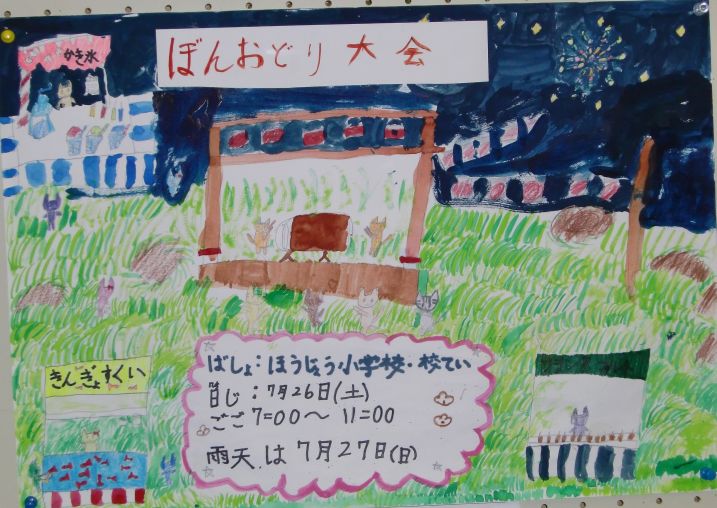 ぼんおどり大会
かき氷
ばしょ：ほうじょう小学校・校てい
日じ：7月26日(土)
ごご7:00～11:00
雨天は7月27日(日)
きんぎょすくい